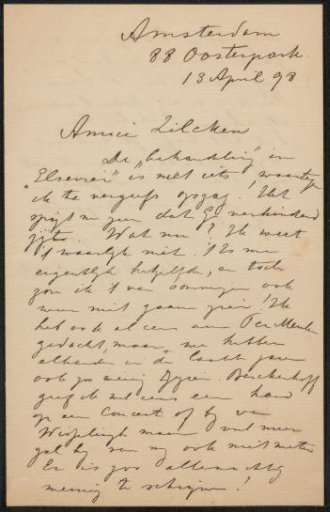 Amsterdam
88 Oosterpark
13 April 98
Amice Zilcken
De „behandeling" in
„Elsevier" is niet iets, waartoe
ik te vergeefs Het
spijt me zeer dat Gij verhinderd
zijt. Wat nu? Ik weet
't waarlijk niet. 't Is me
eigenlijk hetzelfde, en toch
zou ik 't van sommigen ook
weer niet gaan zien! Ik
heb ook al eens aan Ter Meulen
gedacht, maar we hebben
elkander in de laatste jaren
ook zoo weinig gezien. Berckenhoff
geef ik wel eens een hand
op een concert of bij van
Wisselingh maar veel meer
hij van mij ook niet
Er is zoo allemachtig
weinig te schrijven!